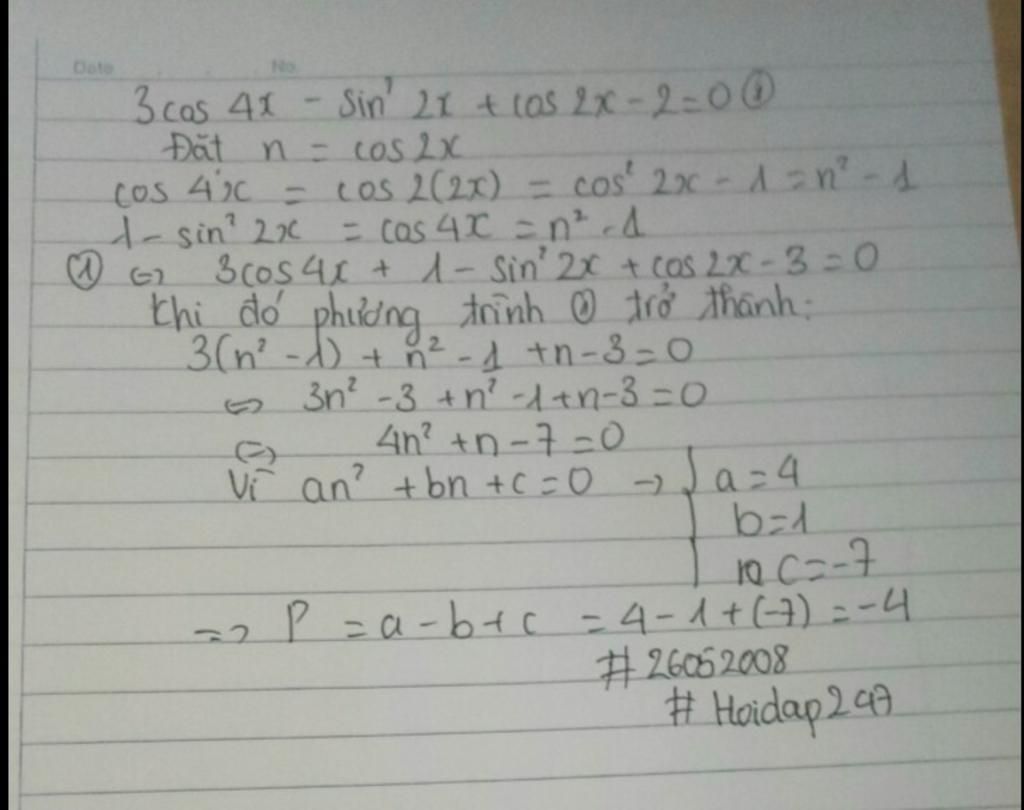 Date No.
3cos 4x - sin² 2x + cos 2x - 2 = 0 ①
Đặt n = cos 2x
cos 4x = cos 2(2x) = cos² 2x - 1 = n² - 1
1 - sin² 2x = cos 4x = n² - 1
① ⇔ 3cos 4x + 1 - sin² 2x + cos 2x - 3 = 0
Khi đó phương trình ① trở thành:
3(n² - 1) + n² - 1 + n - 3 = 0
⇔ 3n² - 3 + n² - 1 + n - 3 = 0
⇔ 4n² + n - 7 = 0
Vì an² + bn + c = 0 → { a = 4
b = 1
c = -7
=> P = a - b + c = 4 - 1 + (-7) = -4
# 26052008
# Hoidap247